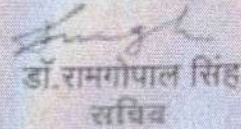 डॉ.रामगोपाल सिंह
सचिव